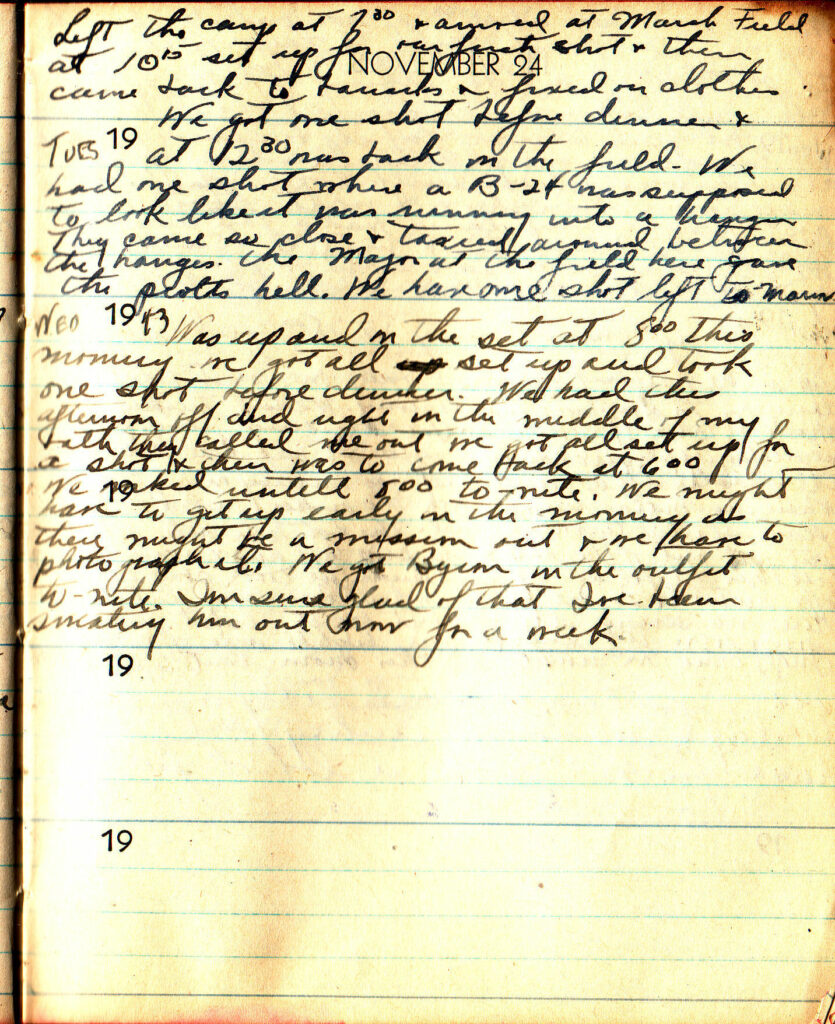 Left the camp at 7 30 & arrived at March Field
at 10 15 set up for our first shot & then
NOVEMBER 24
came back to barracks & fixed on clothes.
We got one shot before dinner &
TUES 19 at 12 30 was back on the field. We
had one shot where a B-24 was supposed
to look like it was running into a hanger
They came so close & taxied around between
the hanges. The Major at the field here gave
the pilots hell. We have one shot left to
WED 19 43 Was up and on the set at 8 00 this
morning we got all set up and took
one shot before dinner. We had this
afternoon off and right in the middle of my
bath they called me out we got all set up for
a shot & then was to come back at 6 00
19
We worked untell 8 00 to-nite. We might
have to get up early in the morning as
there might be a mission out & we have to
photograph it. We got Byron in the outfit
to-nite. I'm sure glad of that I've been
sweating him out now for a week.
19
19